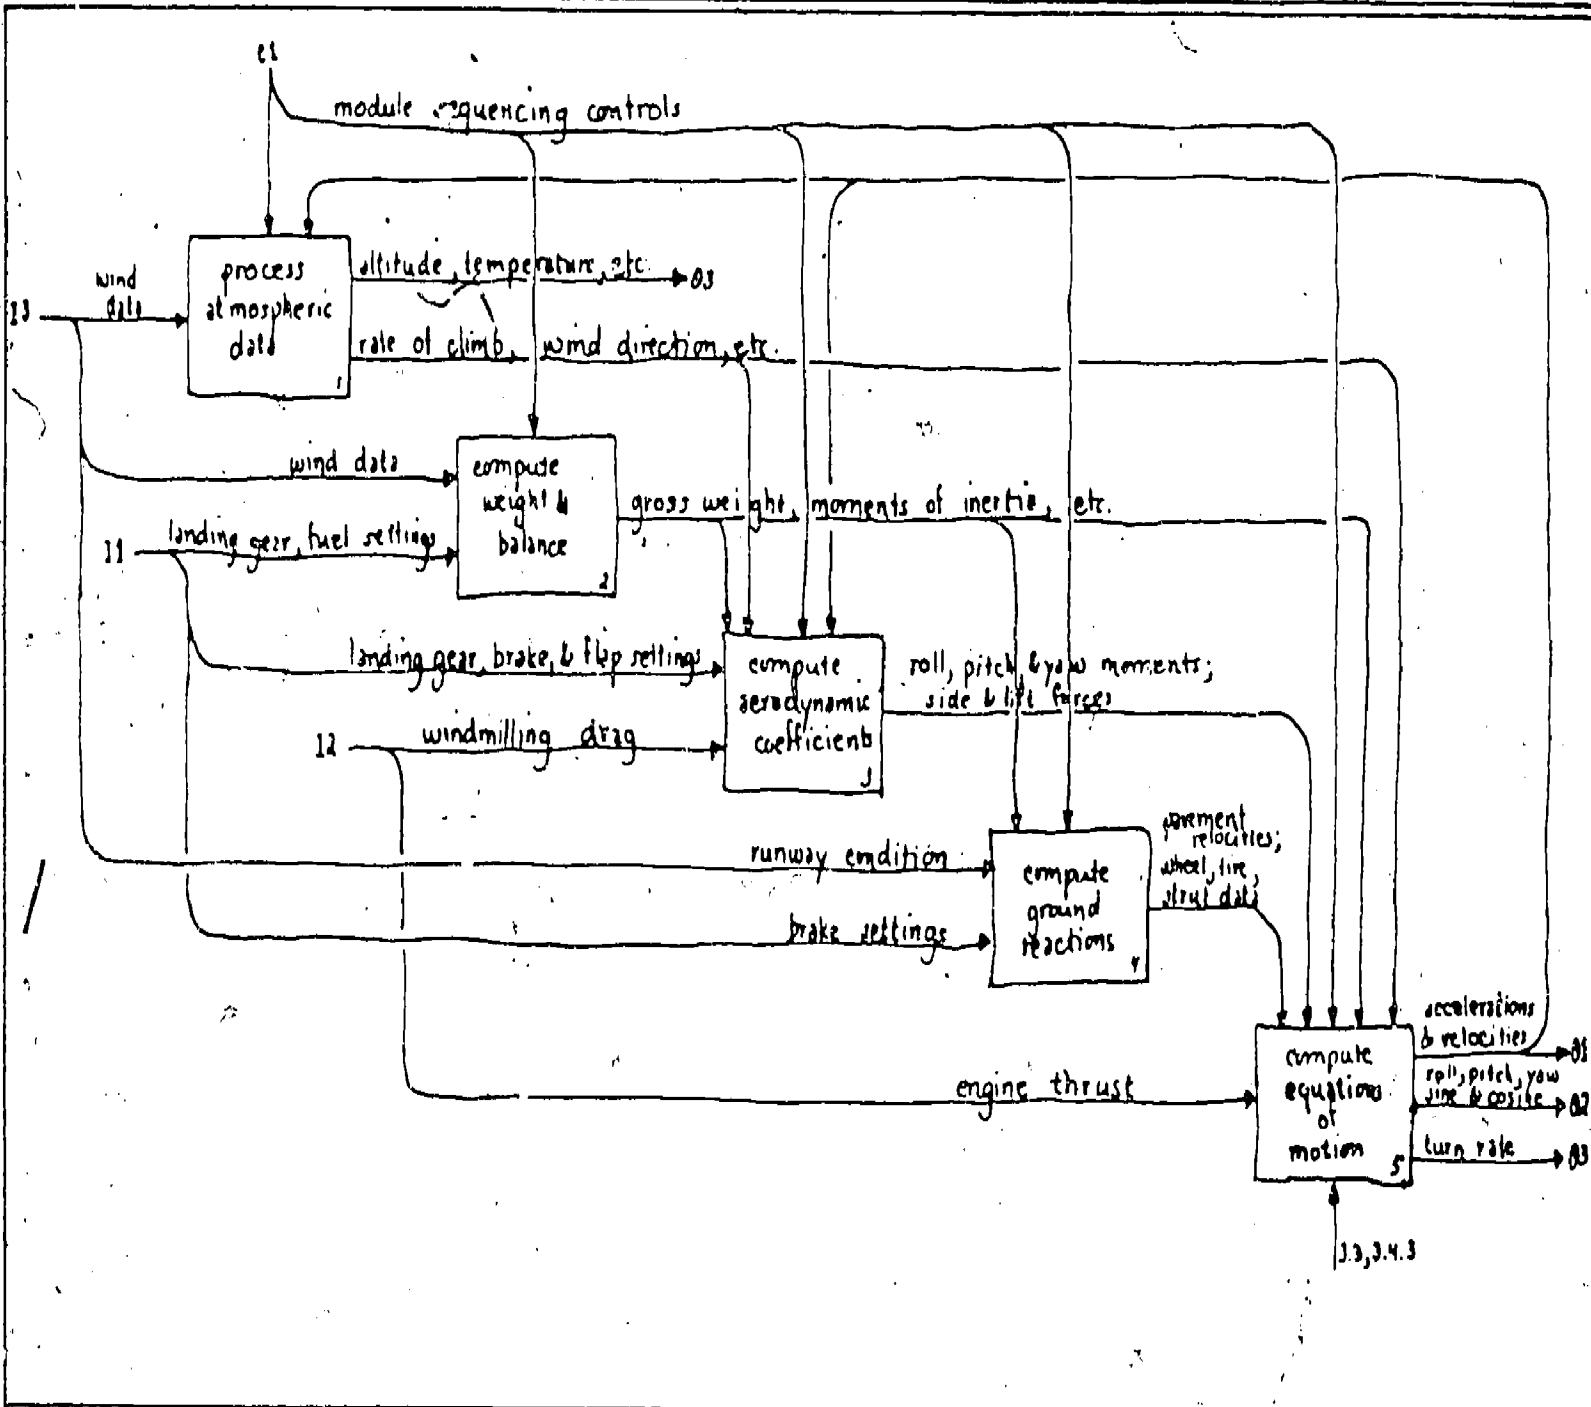 C1
module sequencing controls
wind
data
I3
process
atmospheric
data
1
altitude, temperature, etc.
O3
rate of climb, wind direction, etc.
wind data
compute
weight &
balance
2
gross weight, moments of inertia, etc.
I1
landing gear, fuel settings
landing gear, brake, & flap settings
compute
aerodynamic
coefficients
3
roll, pitch & yaw moments;
side & lift forces
I2
windmilling drag
runway condition
compute
ground
reactions
4
pavement
velocities;
wheel, tire,
strut data
brake settings
engine thrust
compute
equations
of
motion
5
accelerations
& velocities
O1
roll, pitch, yaw
sine & cosine
O2
turn rate
O3